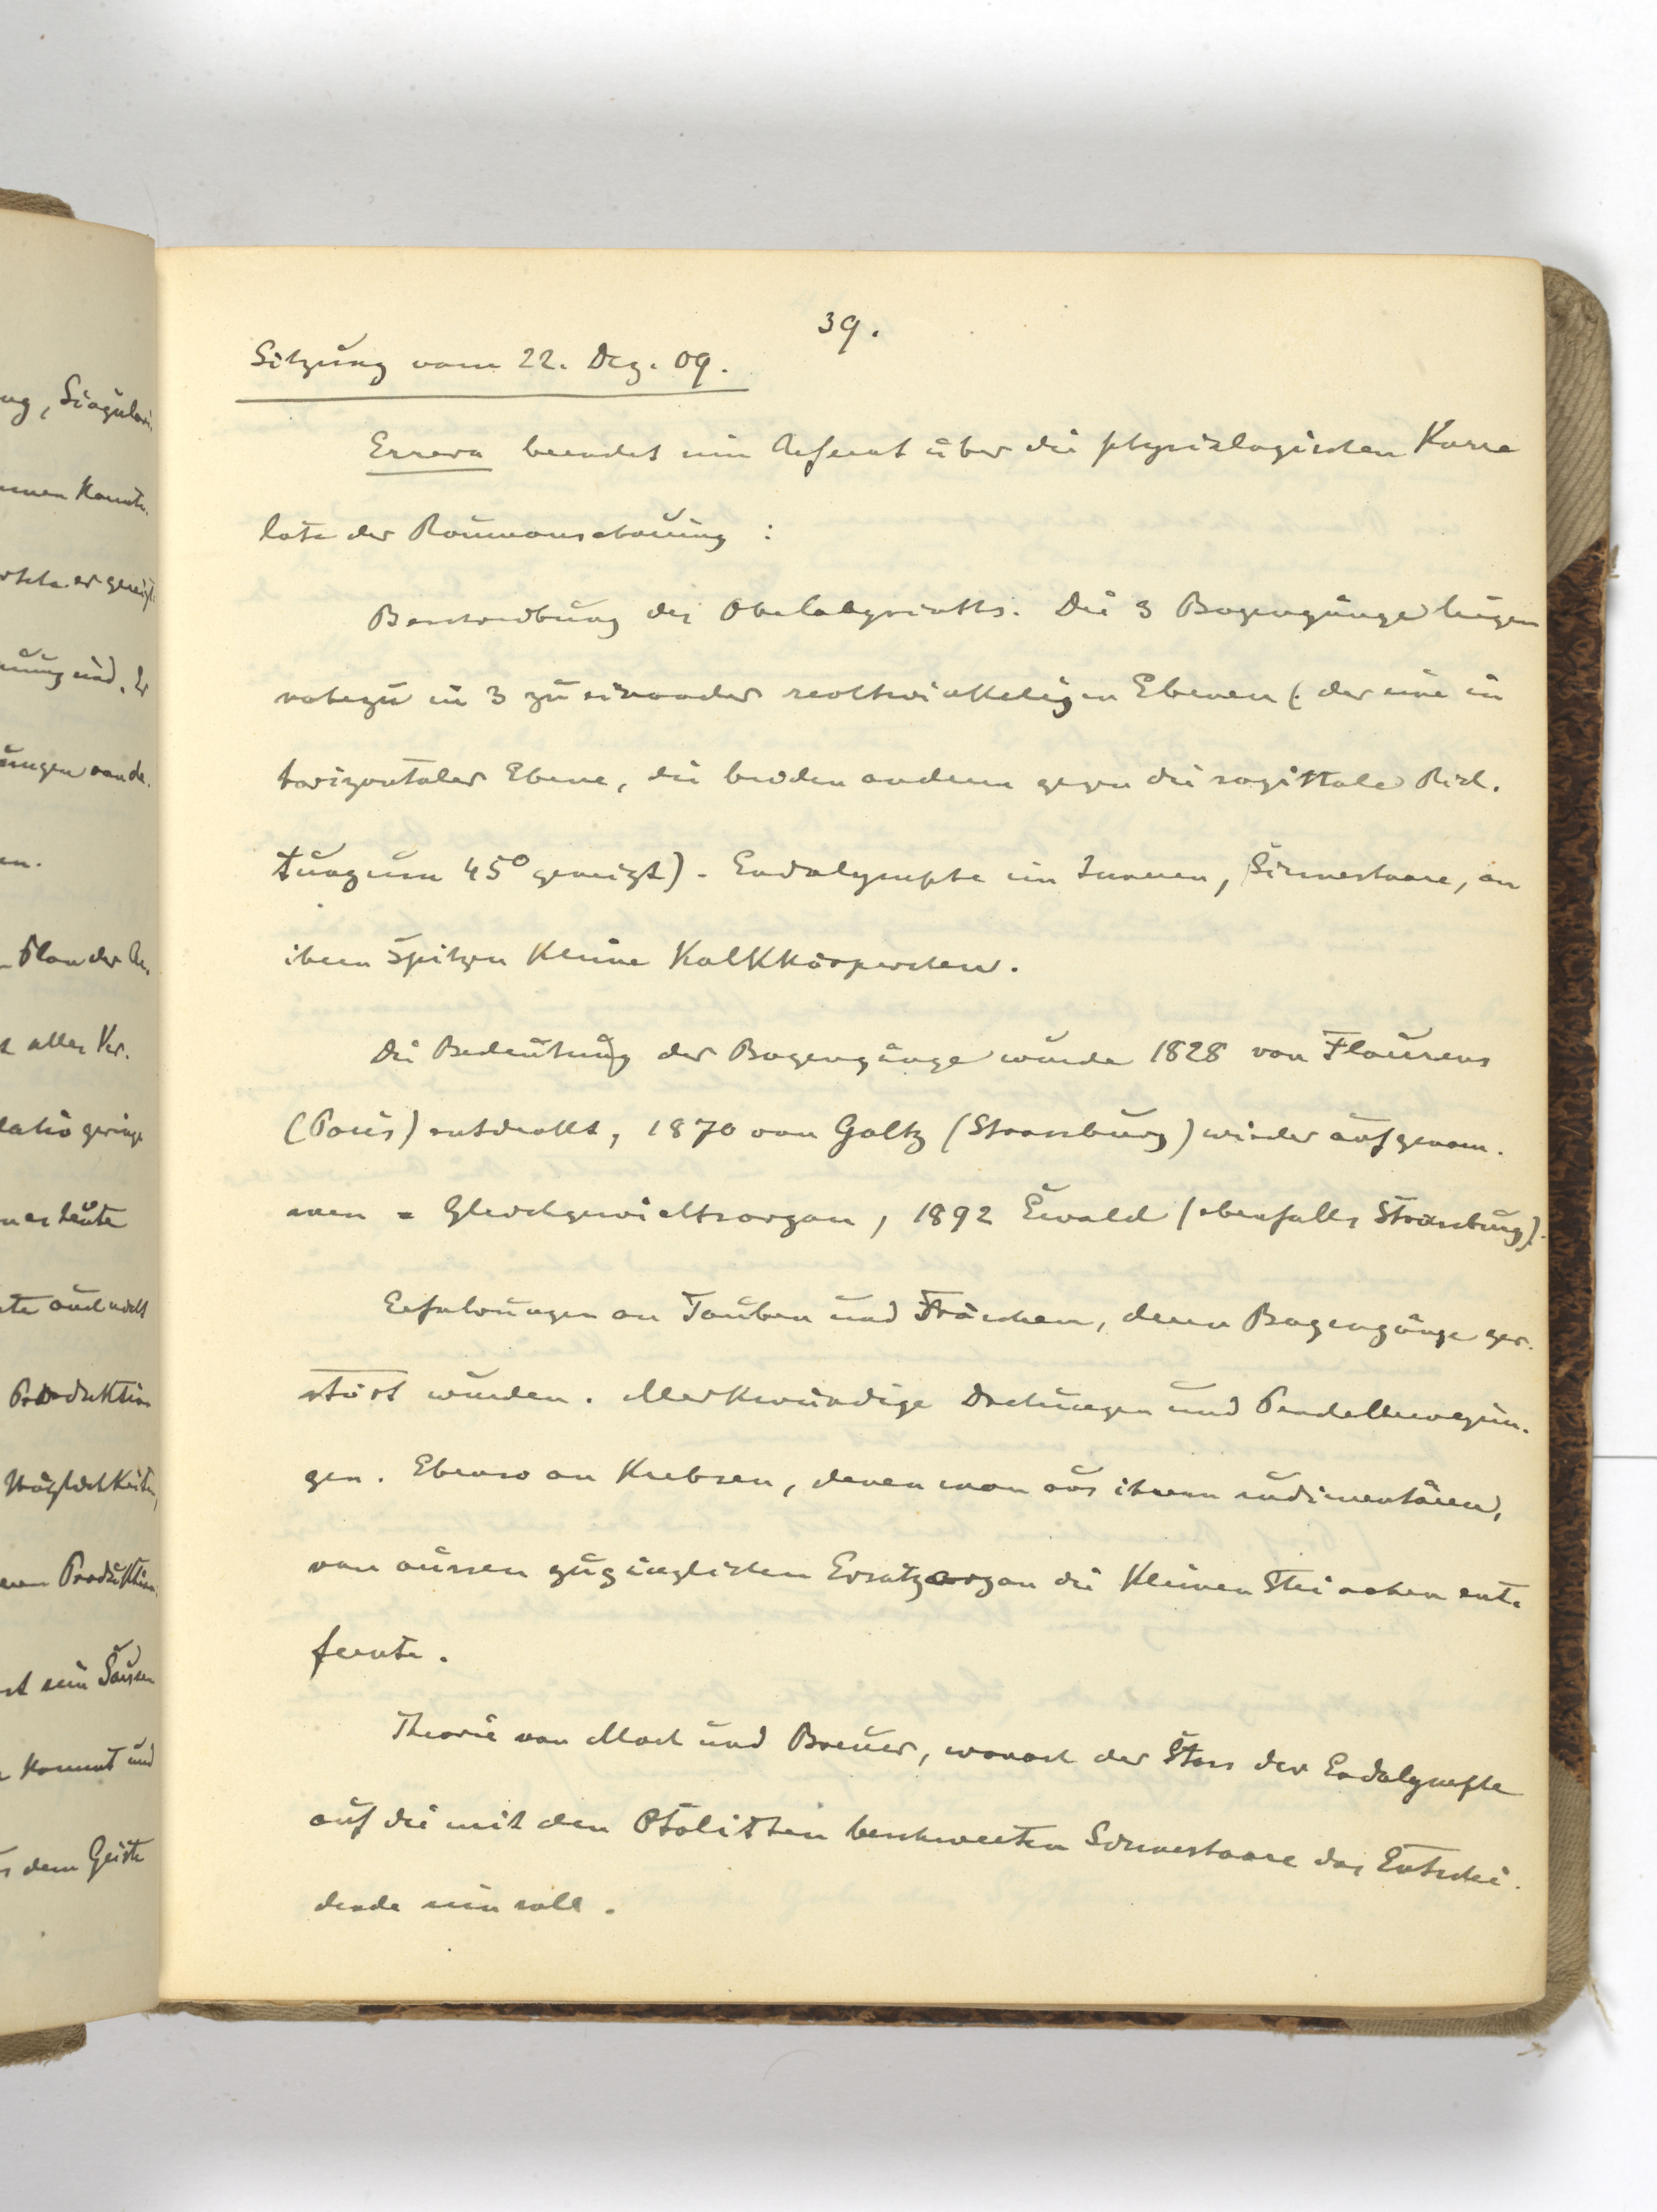 39.
Sitzung vom 22. Dez. 09.
Errera beendet sein Referat über die physiologischen Korre
late der Raumanschauung :
Beschreibung des Ohrlabyrinths. Die 3 Bogengänge liegen
nahezu in 3 zu einander rechtwinkeligen Ebenen (der eine in
horizontaler Ebene, die beiden andern gegen die sagittale Rich-
tung um 45° geneigt). Endolymphe im Innern, Sinneshaare, an
ihren Spitzen kleine Kalkkörperchen.
Die Bedeutung der Bogengänge wurde 1828 von Flourens
(Paris) entdeckt, 1870 von Goltz (Strassburg) wieder aufgenom-
men = Gleichgewichtsorgan, 1892 Ewald (ebenfalls Strassburg).
Erfahrungen an Tauben und Fröschen, deren Bogengänge zer-
stört wurden. Merkwürdige Drehungen und Pendelbewegun-
gen. Ebenso an Krebsen, denen man aus ihrem rudimentären,
von aussen zugänglichen Ersatzorgan die kleinen Steinchen ent-
fernte.
Theorie von Mach und Breuer, wonach der Stoss der Endolymphe
auf die mit den Otolithen beschwerten Sinneshaare das Entschei-
dende sein soll.
ng, Singulari-
Plan der
aller Ver-
heute
Produktion
Möglichkeiten,
Produktion
kommt und
dem Geiste